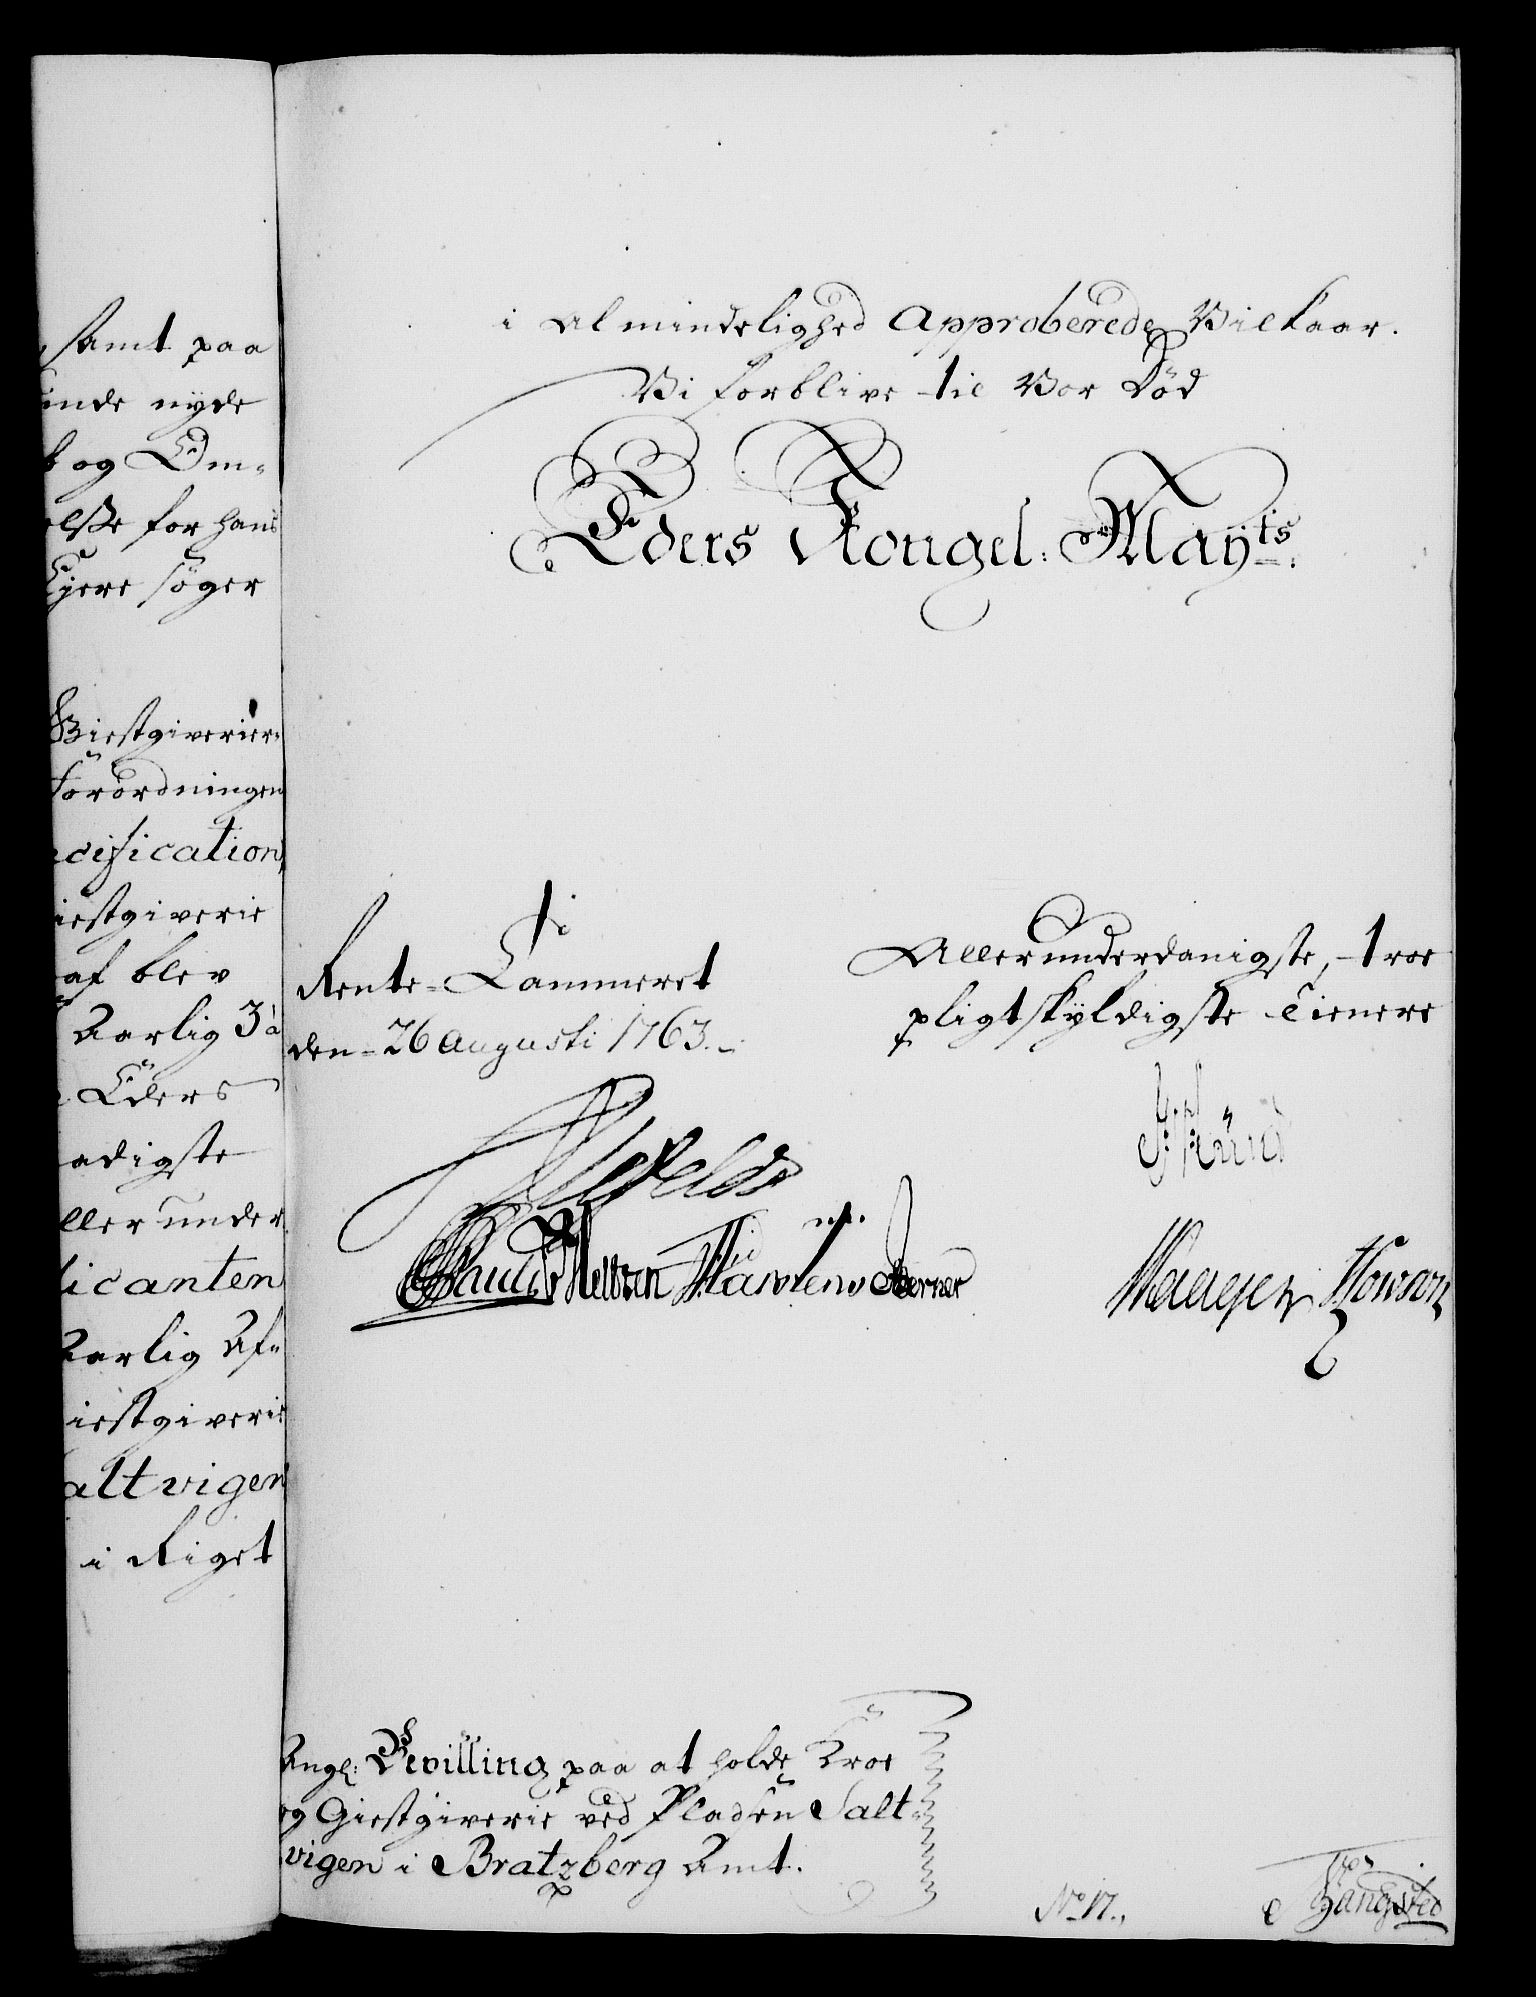 samt paa
inde nyde
og Om-
else for hans
Ejere søger
Giestgiverier-
Forordningen
cification,
iestgiverie
af blev
Aarlig 3 à
Eders
adigste
ller under-
licanten
Aarlig Af-
iestgiverie
altvigen
i Riget
i Almindelighed approberede Vilkaar.
Vi forblive til Vor Død
Eders Kongel: Mayts:
Rente-Cammeret
den 26 Augusti 1763.
Allerunderdanigste, troe
pligtskyldigste Tienere
Ahlefeldt
Angl: Bevilling paa at holde Kroe
og Giestgiverie ved Pladsen Salt-
vigen i Bratzberg Amt.
No 17.
Bangsted